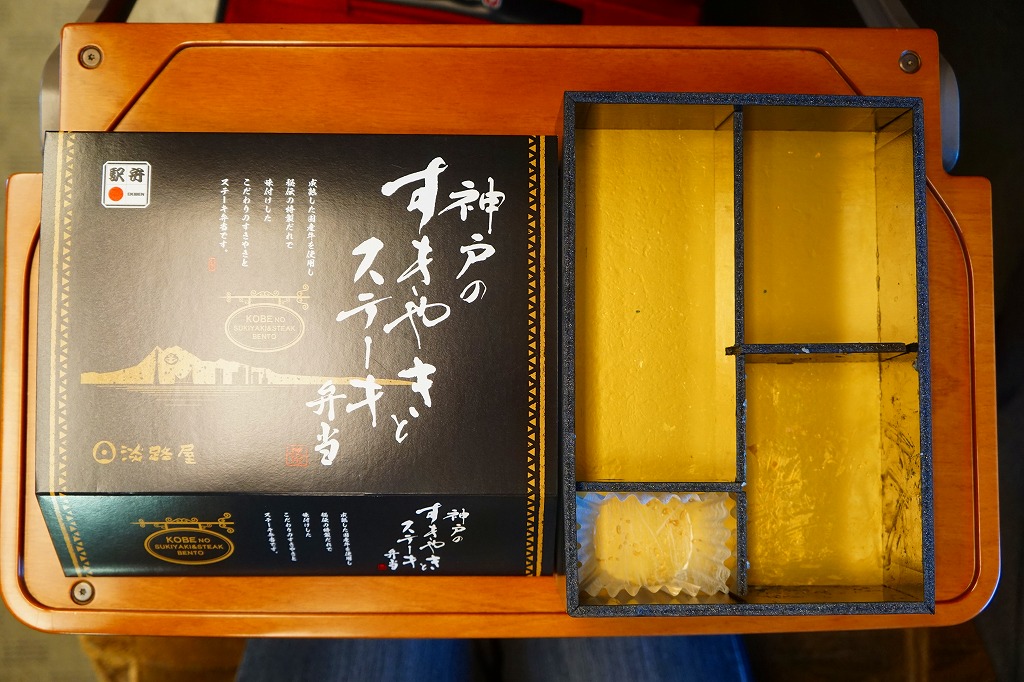 駅弁
EKIBEN
神戸の
すきやきと
ステーキ
弁当
成熟した国産牛を使用し
秘伝の特製だれで
味付けした
こだわりのすきやきと
ステーキ弁当です。
KOBE NO
SUKIYAKI&STEAK
BENTO
淡路屋
神戸の
すきやきと
ステーキ
弁当
成熟した国産牛を使用し
秘伝の特製だれで
味付けした
こだわりのすきやきと
ステーキ弁当です。
KOBE NO
SUKIYAKI&STEAK
BENTO